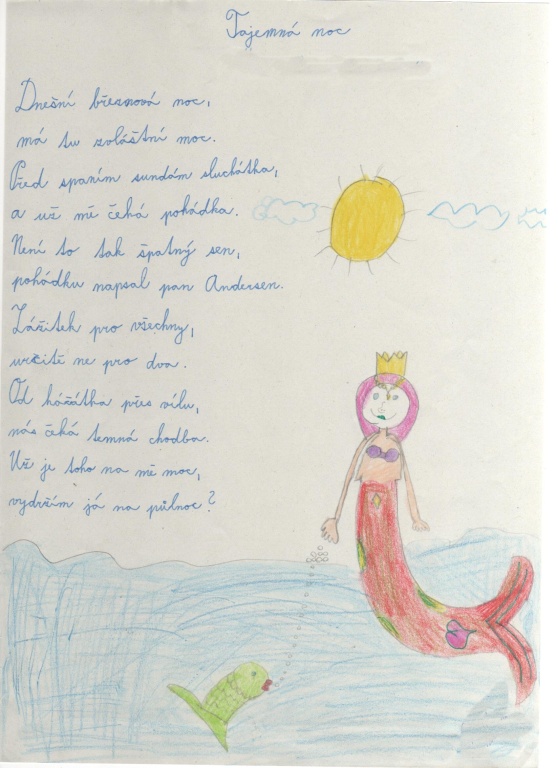 Tajemná noc
Dnešní březnová noc,
má tu zvláštní moc.
Před spaním sundám sluchátka,
a už mě čeká pohádka.
Není to tak špatný sen,
pohádku napsal pan Andersen.
Zážitek pro všechny,
určitě ne pro dva.
Od kářátka přes vílu,
nás čeká temná chodba.
Už je toho na mě moc,
vydržím já na půlnoc?